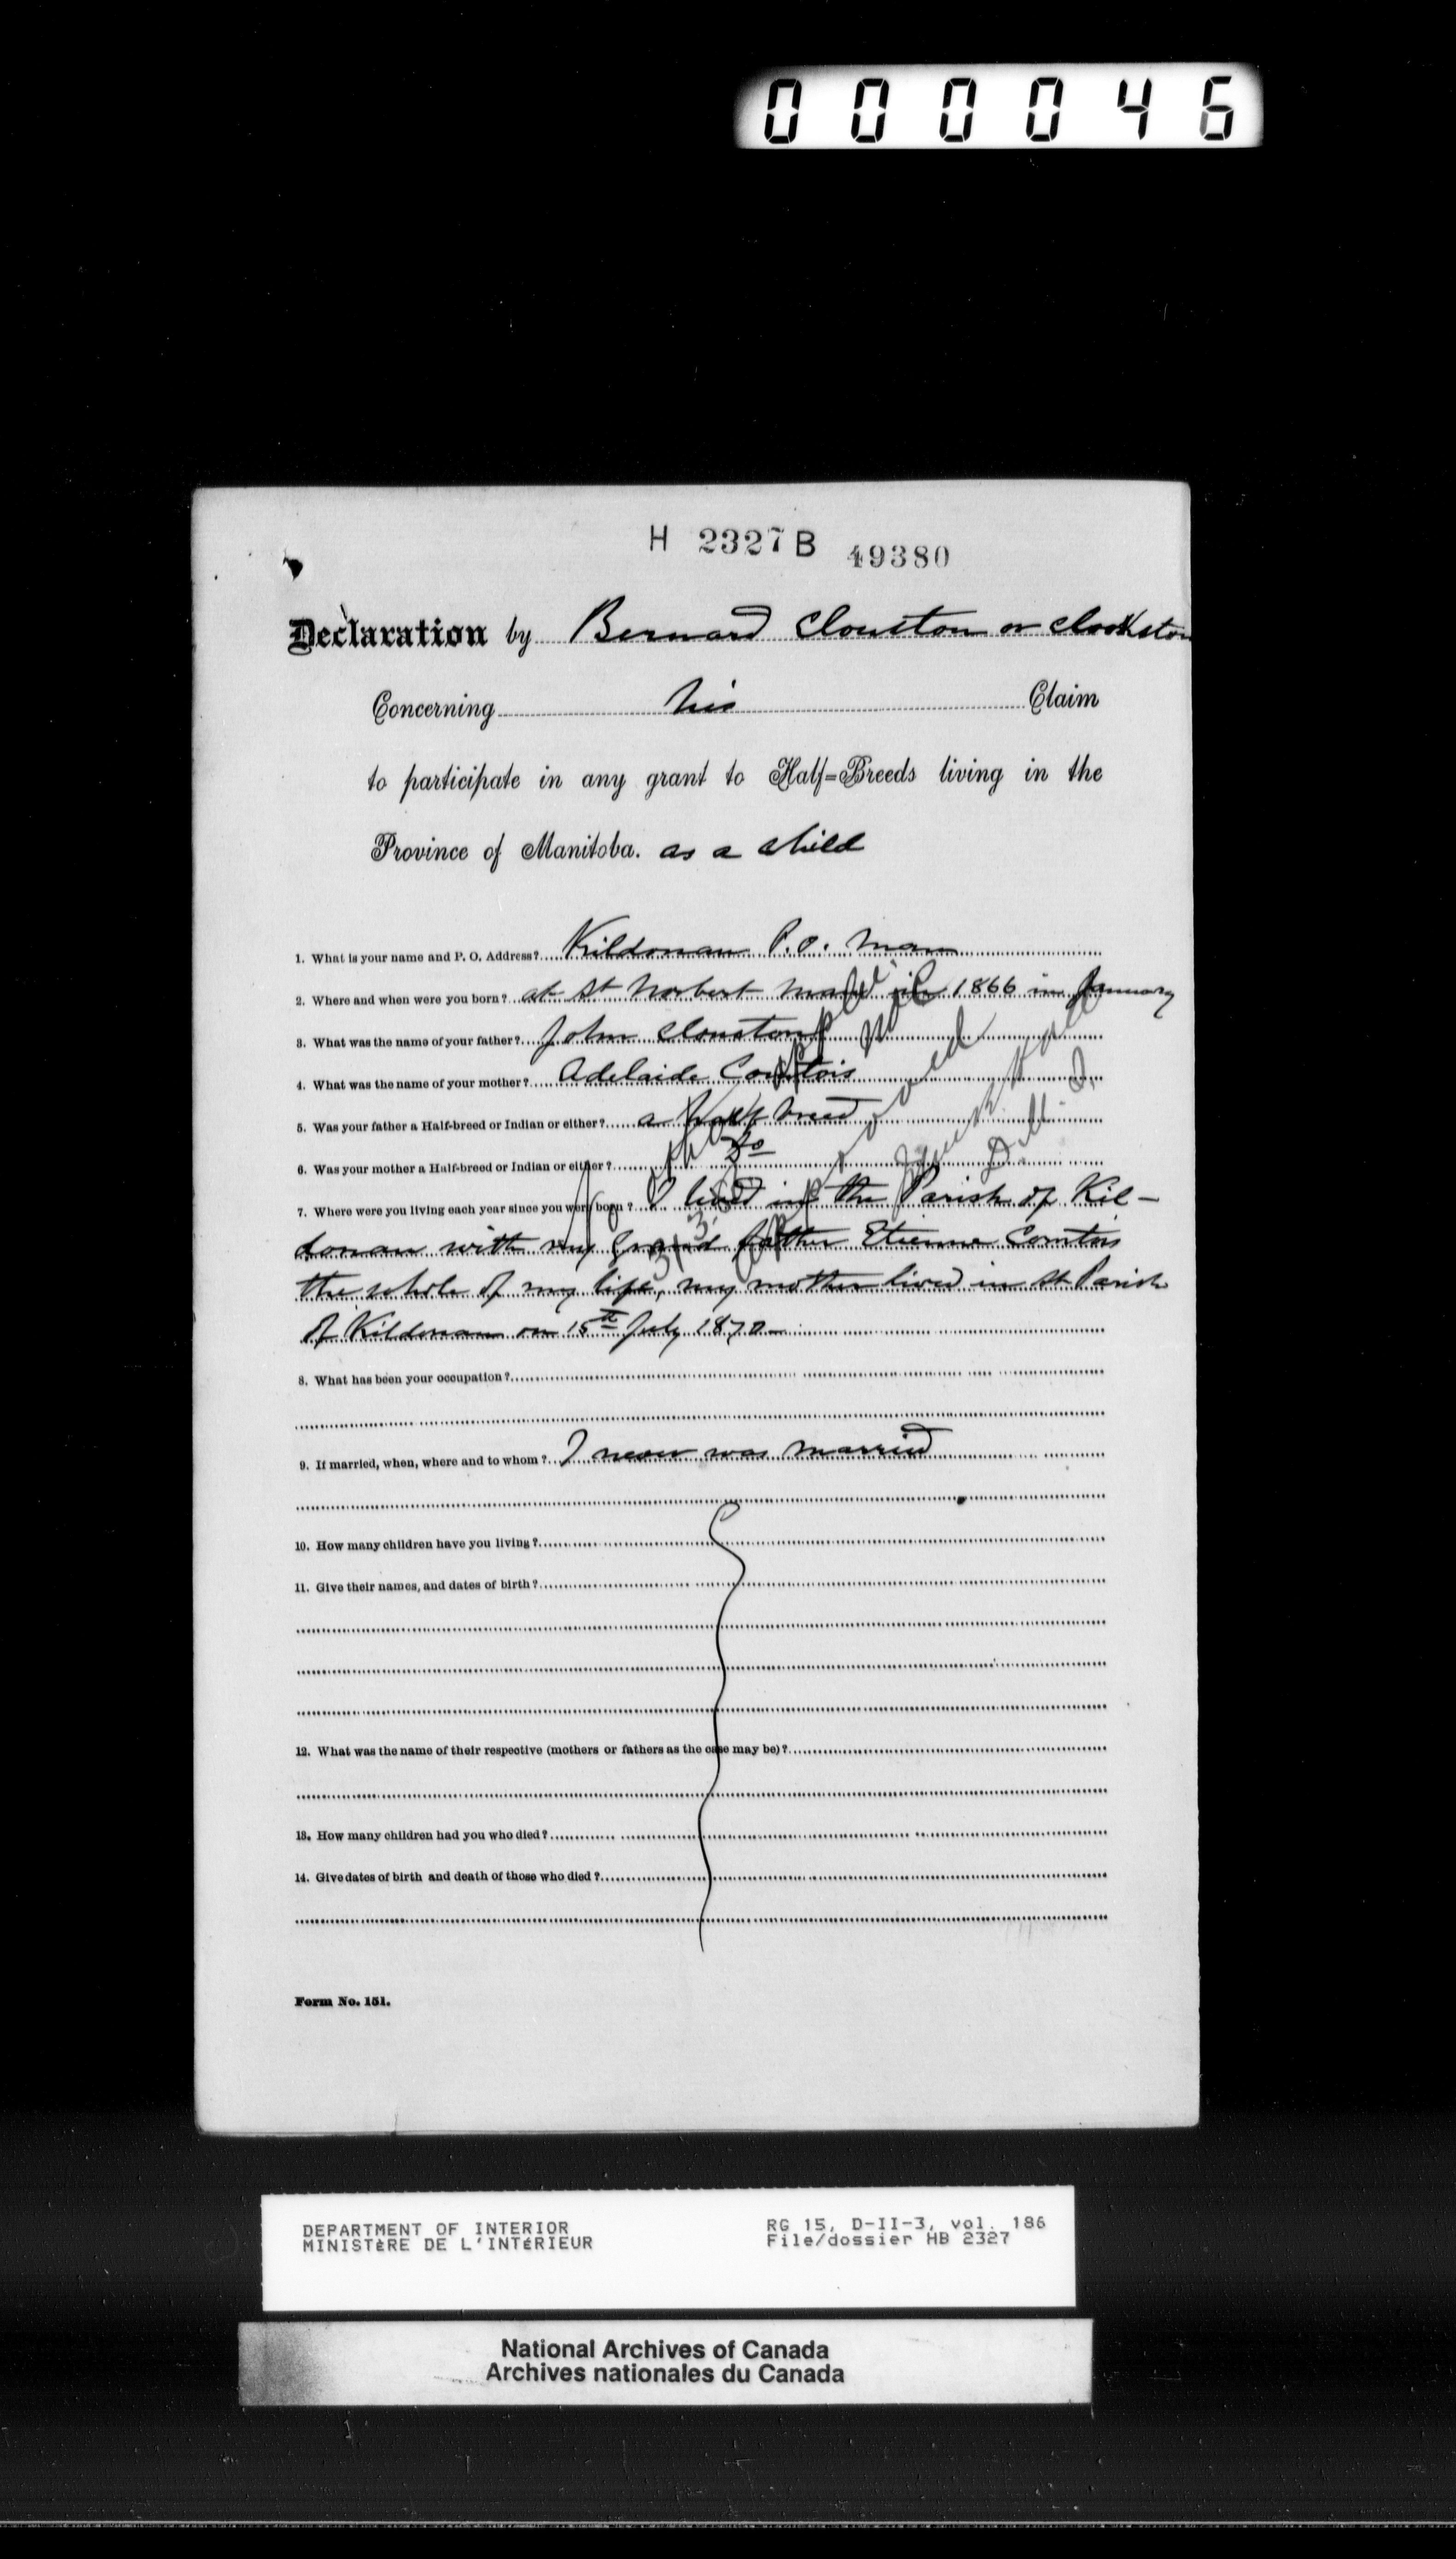 000046
H 2327 B 49380
Declaration by Bernard Clouston or Clookston
Concerning his Claim
to participate in any grant to Half=Breeds living in the
Province of Manitoba. as a child
1. What is your name and P. O. Address? Kildonan P.O. Man
2. Where and when were you born? at St Norbert in 1866 in January
3. What was the name of your father? John Clouston
4. What was the name of your mother? Adelaide Comtois
5. Was your father a Half-breed or Indian or either? a half breed
6. Was your mother a Half-breed or Indian or either? Do
7. Where were you living each year since you were born? I lived in the Parish of Kil-
donan with my grand father Etienne Comtois
the whole of my life, my mother lived in St Parish
of Kildonan on 15th July 1870-
8. What has been your occupation?
9. If married, when, where and to whom? I never was married
10. How many children have you living?
11. Give their names, and dates of birth?
12. What was the name of their respective (mothers or fathers as the case may be)?
13. How many children had you who died?
14. Give dates of birth and death of those who died?
Form No. 151.
DEPARTMENT OF INTERIOR
MINISTÈRE DE L'INTÉRIEUR
RG 15, D-II-3, vol. 186
File/dossier HB 2327
National Archives of Canada
Archives nationales du Canada